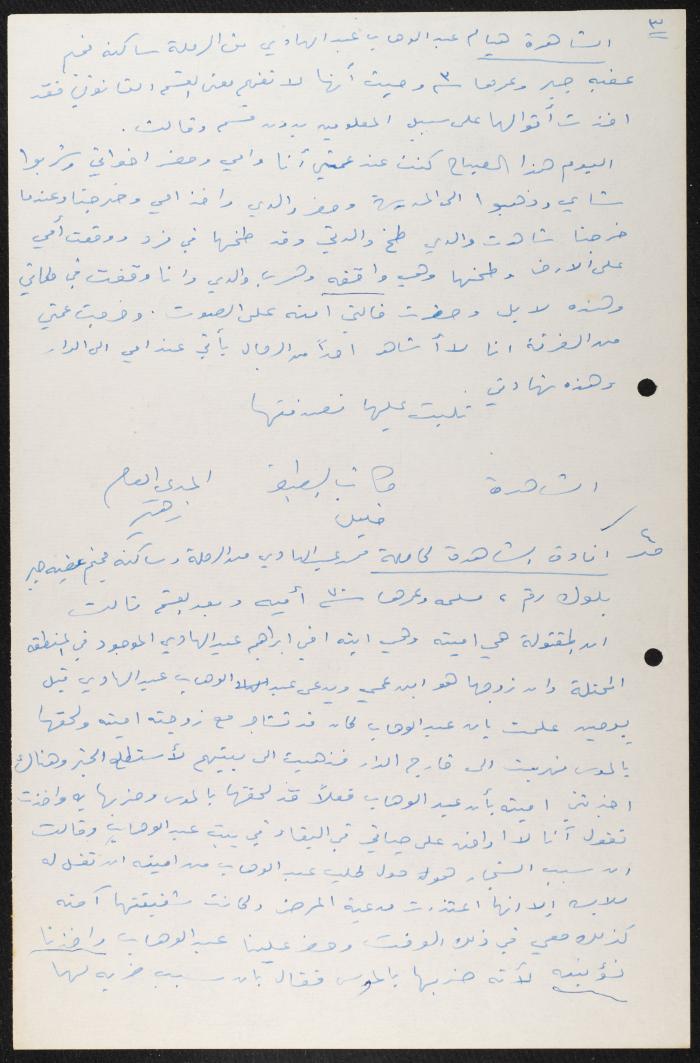 ٣
الشاهدة هيام عبد الوهاب عبد الهادي من الرملة ساكنة مخيم
عقبه جبر وعمرها ٣ سنـ وحيث أنها لا تفهم معنى القسم القانوني فقد
اخذت أقوالها على سبيل المعلومات بدون قسم وقالت .
اليوم هذا الصباح كنت عند عمتي أنا وامي وحضر اخواتي وشربوا
شاي وذهبوا الى المدرسة وحضر والدي واخذ امي وخرجنا وعندما
خرجنا شاهدت والدي طخ والدتي وقد طخها في فرد ووقعت أمي
على الارض وطخها وهي واقفه وهرب والدي وانا وقفت في مكاني
وهذه لابل وحضرت خالتي امنه على الصوت . وخرجت عمتي
من الغرفة انا لا أشاهد احداً من الرجال يأتي عند امي الى الدار
وهذه شهادتي
تليت عليها فصدقتها
الشاهدة كاتب الضبط المدعي العام
خليل
أفادة الشاهدة كاملة محمد عبد الهادي من الرملة وساكنة مخيم عقبه جبر
بلوك رقم ٢ مسلمه وعمرها ٧٠ سنـ أميه وبعد القسم قالت
ان المقتولة هي امينه وهي ابنه اخي ابراهيم عبد الهادي الموجود في المنطقه
المحتلة وان زوجها هو ابن عمي ويدعى عبد الوهاب عبد الهادي قبل
يومين علمت بان عبد الوهاب كان قد تشاجر مع زوجته امينه ولحقها
بالموس فهربت الى خارج الدار فذهبت الى بيتهم لأستطلع الخبر وهناك
اخبرتني امينه بأن عبد الوهاب فعلاً قد لحقها بالموس وضربها به واخذت
تقول أنا لا اوافق على حياتي في البقاء في بيت عبد الوهاب وقالت
ان سبب الشجار هو حول طلب عبد الوهاب من امينه ان تغسل له
ملابسه إلا انها اعتذرت مدعية المرض وكانت شقيقتها آمنه
كذلك معي في ذلك الوقت وحضر علينا عبد الوهاب واخذنا
نؤنبه لأنه ضربها بالموس فقال بان سبب ضربه لها